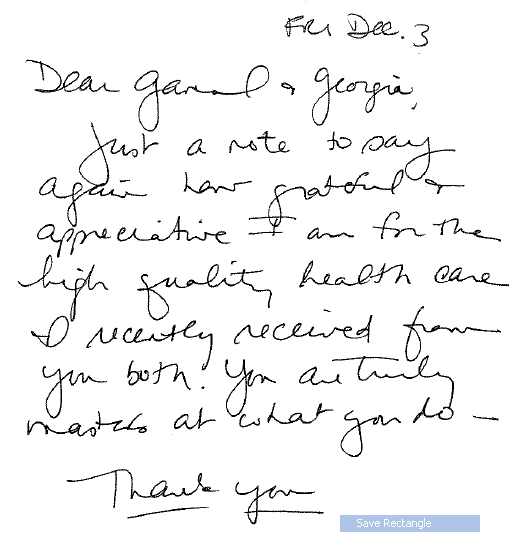 Fri Dec. 3
Dear & Georgia,
Just a note to say
again how grateful &
appreciative I am for the
high quality health care
I recently received from
you both. You are truly
masters at what you do —
Thank you
Save Rectangle